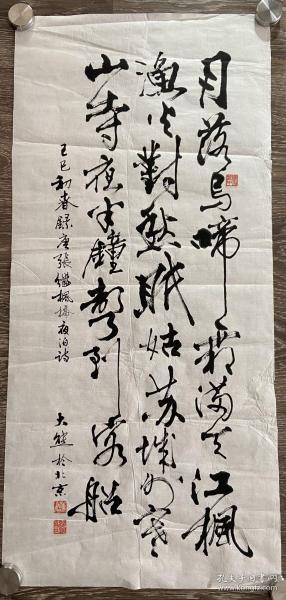 月落烏啼霜滿天江楓
漁火對愁眠姑苏城外寒
山寺夜半鐘聲到客船
巳初春録唐張繼楓橋夜泊詩
大於北京